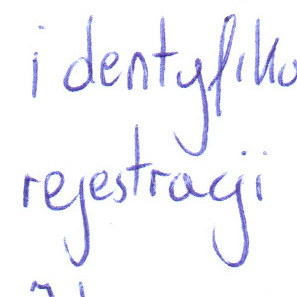 identyfiko
rejestracji